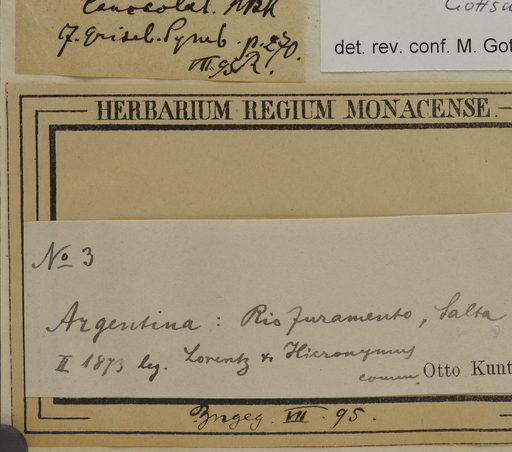 lanceolat. HBK
f. Griseb. Symb. p. 270.
VII. 95 R.
det. rev. conf. M. Got
HERBARIUM REGIUM MONACENSE.
No 3
Argentina : Rio Juramento, Salta
II 1873 leg. Lorentz & Hieronymus
comm. Otto Kunt
Zugeg. VII. 95.